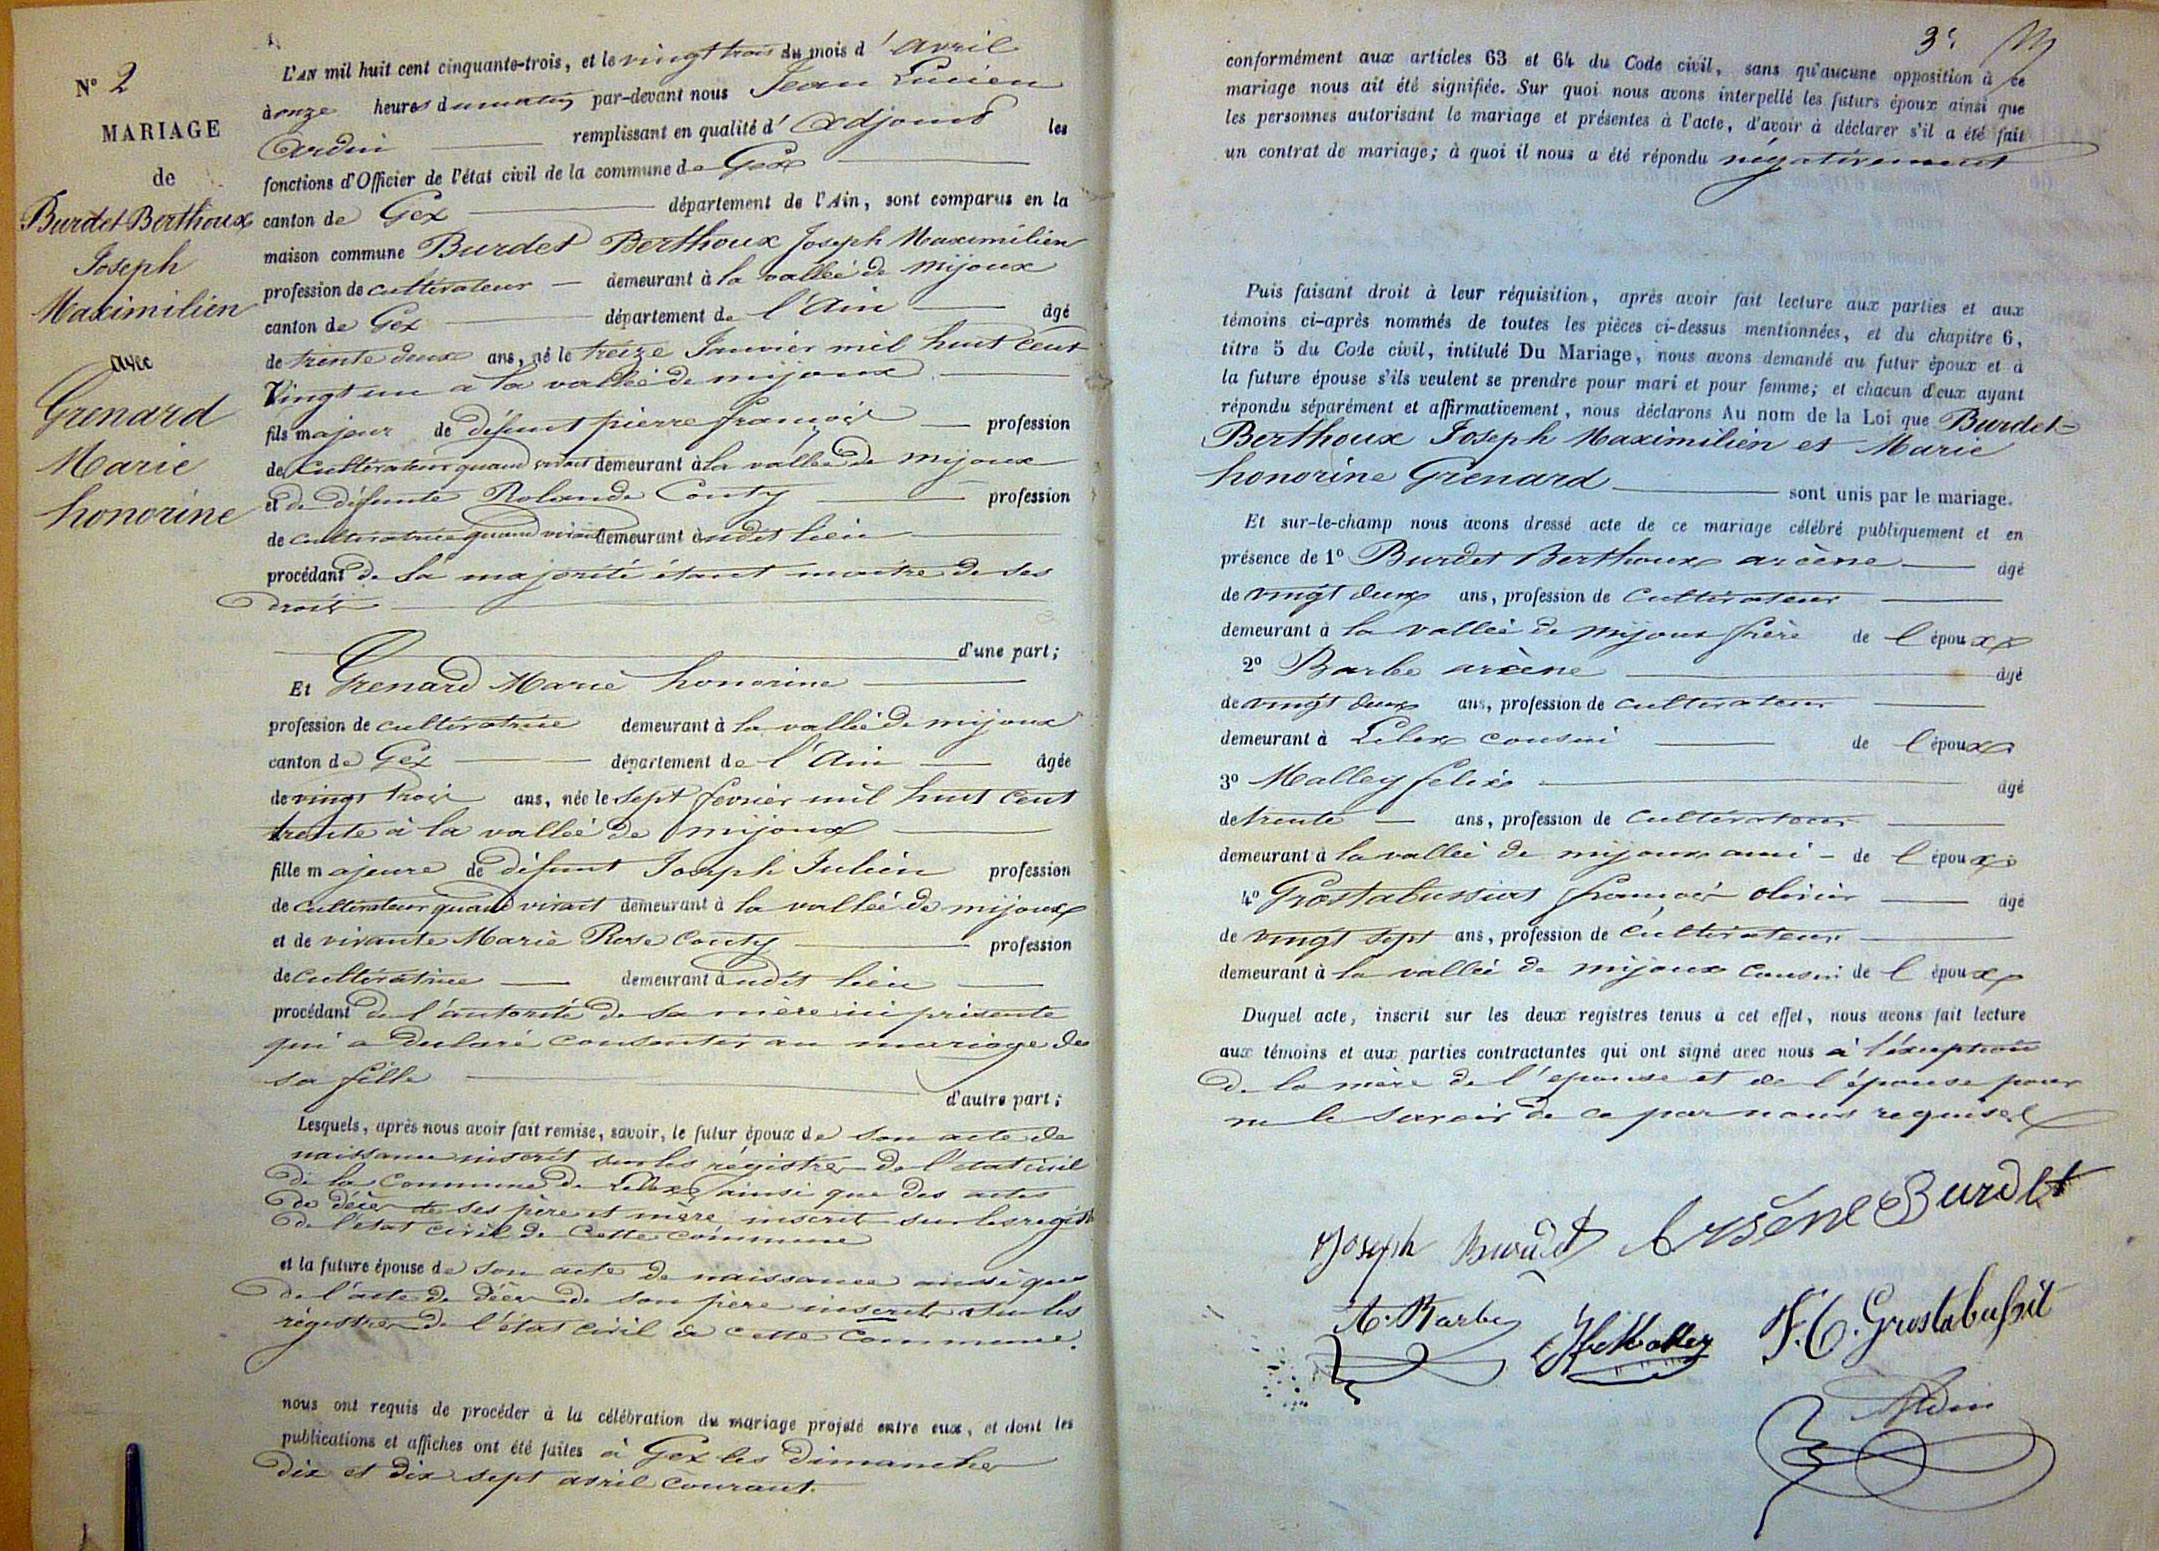 N° 2
MARIAGE
de
Burdet-Berthoux
Joseph
Maximilien
avec
Grenard
Marie
honorine
L'AN mil huit cent cinquante-trois, et le vingt trois du mois d'avril
à onze heures du matin par-devant nous Jean Lucien
remplissant en qualité d'Adjoint les
fonctions d'Officier de l'état civil de la commune de Gex
canton de Gex département de l'Ain, sont comparus en la
maison commune Burdet Berthoux Joseph Maximilien
profession de cultivateur demeurant à la vallée de mijoux
canton de Gex département de l'Ain âgé
de trente deux ans, né le treize Janvier mil huit cent
Vingt un a la vallée de mijoux
fils majeur de défunt pierre françois profession
de Cultivateur quand vivait demeurant à la vallée de mijoux
et de défunte Rolande Conty profession
de cultivatrice quand vivait demeurant audit lieu
procédant de sa majorité étant maitre de ses
droits
d'une part;
Et Grenard Marie honorine
profession de cultivatrice demeurant à la vallée de mijoux
canton de Gex département de l'Ain âgée
de vingt trois ans, née le sept fevrier mil huit cent
trente à la vallée de mijoux
fille majeure de défunt Joseph Julien profession
de cultivateur quand vivait demeurant à la vallée de mijoux
et de vivante Marie Rose Conty profession
de cultivatrice demeurant audit lieu
procédant de l'autorité de sa mère ici présente
qui a declaré consentir au mariage de
sa fille
d'autre part;
Lesquels, après nous avoir fait remise, savoir, le futur époux de son acte de
naissance inscrit sur les régistres de l'état civil
de la Commune de Lelex, ainsi que des actes
de décès de ses père et mère inscrits sur les regist
de l'état civil de cette commune
et la future épouse de son acte de naissance ainsi que
de l'acte de décès de son père inscrits sur les
régistres de l'état civil de cette Commune.
nous ont requis de procéder à la célébration du mariage projeté entre eux, et dont les
publications et affiches ont été faites à Gex les Dimanches
dix et dix sept avril courant.
3
conformément aux articles 63 et 64 du Code civil, sans qu'aucune opposition à ce
mariage nous ait été signifiée. Sur quoi nous avons interpellé les futurs époux ainsi que
les personnes autorisant le mariage et présentes à l'acte, d'avoir à déclarer s'il a été fait
un contrat de mariage; à quoi il nous a été répondu négativement
Puis faisant droit à leur réquisition, après avoir fait lecture aux parties et aux
témoins ci-après nommés de toutes les pièces ci-dessus mentionnées, et du chapitre 6,
titre 5 du Code civil, intitulé Du Mariage, nous avons demandé au futur époux et à
la future épouse s'ils veulent se prendre pour mari et pour femme; et chacun d'eux ayant
répondu séparément et affirmativement, nous déclarons Au nom de la Loi que Burdet-
Berthoux Joseph Maximilien et Marie
honorine Grenard sont unis par le mariage.
Et sur-le-champ nous avons dressé acte de ce mariage célébré publiquement et en
présence de 1° Burdet Berthoux arcène âgé
de vingt deux ans, profession de Cultivateur
demeurant à la vallée de mijoux frère de l'époux
2° Barbe arcène âgé
de vingt deux ans, profession de cultivateur
demeurant à Lelex cousin de l'époux
3° Malley felix âgé
de trente ans, profession de Cultivateur
demeurant à la vallée de mijoux ami de l'époux
4° Grostabussiat françois olivier âgé
de vingt sept ans, profession de Cultivateur
demeurant à la vallée de mijoux cousin de l'époux
Duquel acte, inscrit sur les deux registres tenus à cet effet, nous avons fait lecture
aux témoins et aux parties contractantes qui ont signé avec nous à l'éxception
de la mère de l'epouse et de l'épouse pour
ne le savoir de ce par nous requises
Joseph Burdet Arsène Burdet
A. Barbe fx Malley F. O. Grostabussiat